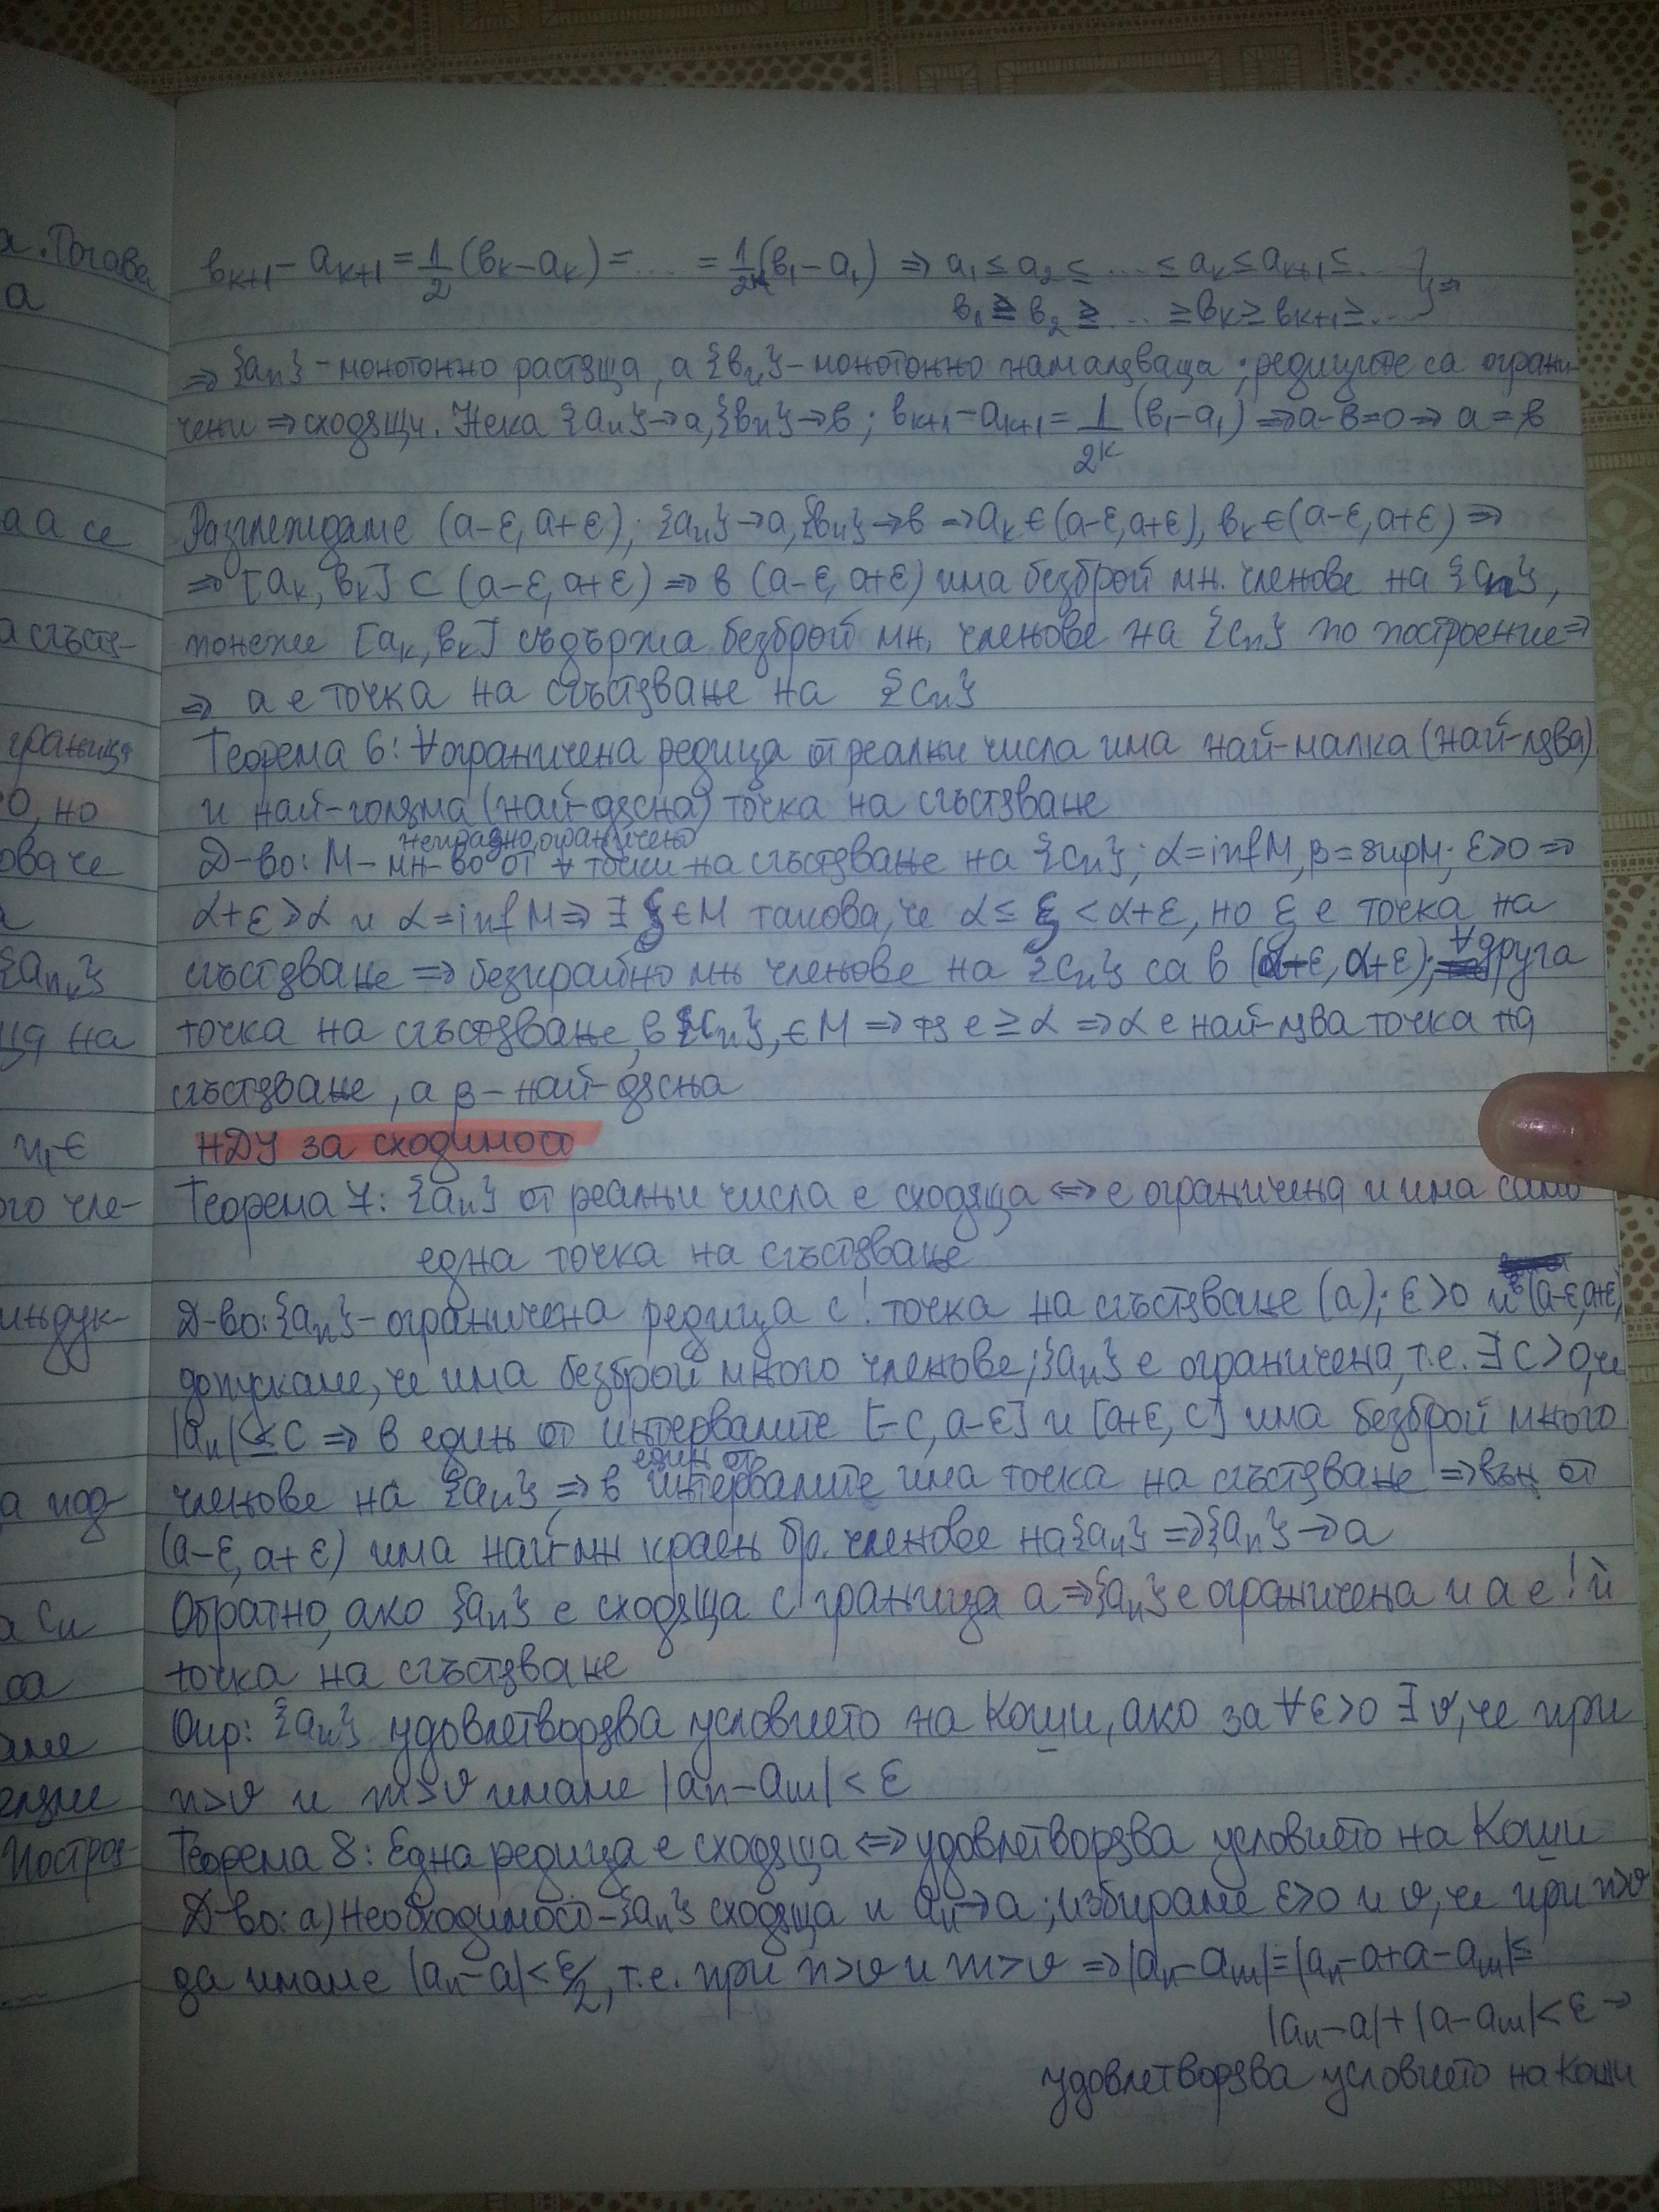 в_{k+1} - a_{k+1} = 1/2 (в_k - a_k) = .... = 1/2^k (в_1 - a_1) ⇒ a_1 ≤ a_2 ≤ .... ≤ a_k ≤ a_{k+1} ≤ ... } ⇒
в_1 ≥ в_2 ≥ .... ≥ в_k ≥ в_{k+1} ≥ ...
⇒ {a_n} - монотонно растяща, а {в_n} - монотонно намаляваща; редиците са ограни-
чени ⇒ сходящи. Нека {a_n} → a, {в_n} → в; в_{k+1} - a_{k+1} = 1/2^k (в_1 - a_1) ⇒ a - в = 0 ⇒ a = в
Разглеждаме (a-ε, a+ε); {a_n} → a, {в_n} → в ⇒ a_k ∈ (a-ε, a+ε), в_k ∈ (a-ε, a+ε) ⇒
⇒ [a_k, в_k] ⊂ (a-ε, a+ε) ⇒ в (a-ε, a+ε) има безброй мн. членове на {c_n},
понеже [a_k, в_k] съдържа безброй мн. членове на {c_n} по построение ⇒
⇒ a е точка на сгъстяване на {c_n}
Теорема 6: ∀ ограничена редица от реални числа има най-малка (най-лява)
и най-голяма (най-дясна) точка на сгъстяване
непразно, ограничено
Д-во: M - мн-во от ∀ точки на сгъстяване на {c_n}; α = inf M, β = sup M; ε > 0 ⇒
α+ε > α и α = inf M ⇒ ∃ ξ ∈ M такова, че α ≤ ξ < α+ε, но ξ е точка на
сгъстяване ⇒ безкрайно мн членове на {c_n} са в (α-ε, α+ε); ∀ друга
точка на сгъстяване в {c_n}, ∈ M ⇒ тя е ≥ α ⇒ α е най-лява точка на
сгъстяване, а β - най-дясна
НДУ за сходимост
Теорема 7: {a_n} от реални числа е сходяща ⇔ е ограничена и има само
една точка на сгъстяване
Д-во: {a_n} - ограничена редица с ! точка на сгъстяване (a); ε > 0 и в (a-ε, a+ε)
допускаме, че има безброй много членове; {a_n} е ограничена, т.е. ∃ C > 0, че
|a_n| ≤ C ⇒ в един от интервалите [-C, a-ε] и [a+ε, C] има безброй много
един от
членове на {a_n} ⇒ в интервалите има точка на сгъстяване ⇒ вън от
(a-ε, a+ε) има най-мн краен бр. членове на {a_n} ⇒ {a_n} → a
Обратно, ако {a_n} е сходяща с граница a ⇒ {a_n} е ограничена и a е ! ѝ
точка на сгъстяване
Опр: {a_n} удовлетворява условието на Коши, ако за ∀ ε > 0 ∃ ν, че при
n > ν и m > ν имаме |a_n - a_m| < ε
Теорема 8: Една редица е сходяща ⇔ удовлетворява условието на Коши
Д-во: а) Необходимост - {a_n} сходяща и a_n → a; избираме ε > 0 и ν, че при n > ν
да имаме |a_n - a| < ε/2, т.е. при n > ν и m > ν ⇒ |a_n - a_m| = |a_n - a + a - a_m| ≤
|a_n - a| + |a - a_m| < ε →
удовлетворява условието на Коши